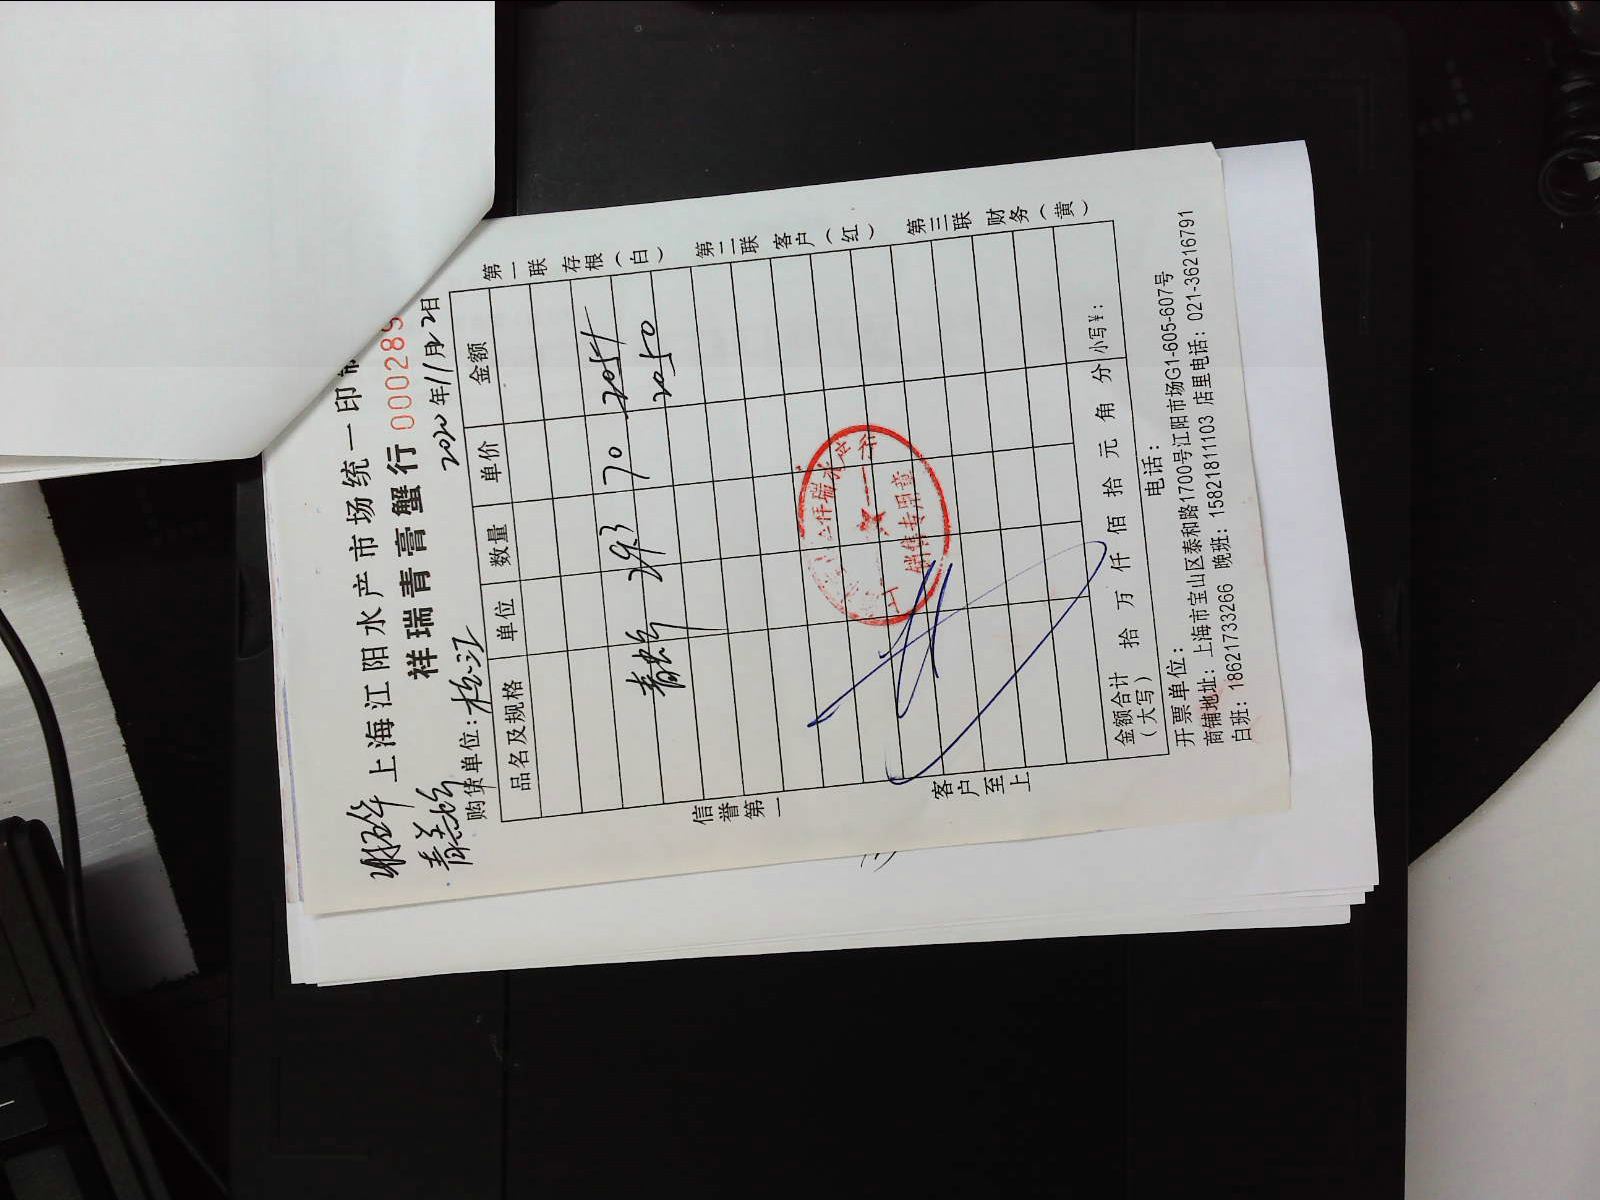 上海江阳水产市场统一印
祥瑞青膏蟹行 000289
购货单位：松江 2020年11月2日
品名及规格 单位 数量 单价 金额
青蟹 29.3 70 2051
2050
金额合计（大写） 拾 万 仟 佰 拾 元 角 分 小写¥：
开票单位： 电话：
商铺地址：上海市宝山区泰和路1700号江阳市场G1-605-607号
白班：18621733266 晚班：15821811103 店里电话：021-36216791
信誉第一 客户至上
第一联 存根（白） 第二联 客户（红） 第三联 财务（黄）
销售专用章